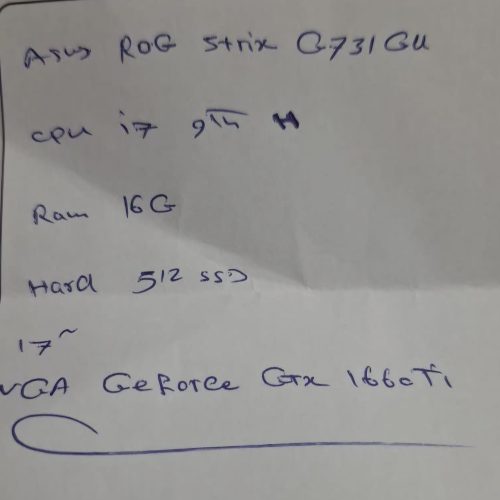 Asus ROG Strix G731GU
cpu i7 9th H
Ram 16G
Hard 512 SSD
17"
VGA GeForce Gtx 1660Ti